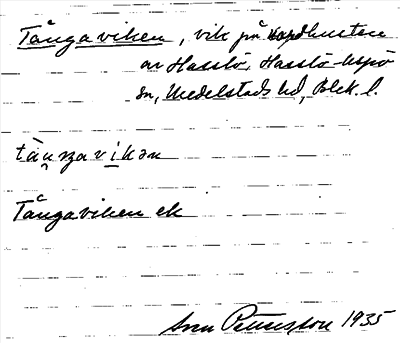 Tångaviken, vik på nordkusten
av Hasslö, Hasslö-Aspö
sn, Medelstads hd, Blek. l.
Tångaviken ek
Pettersson 1935